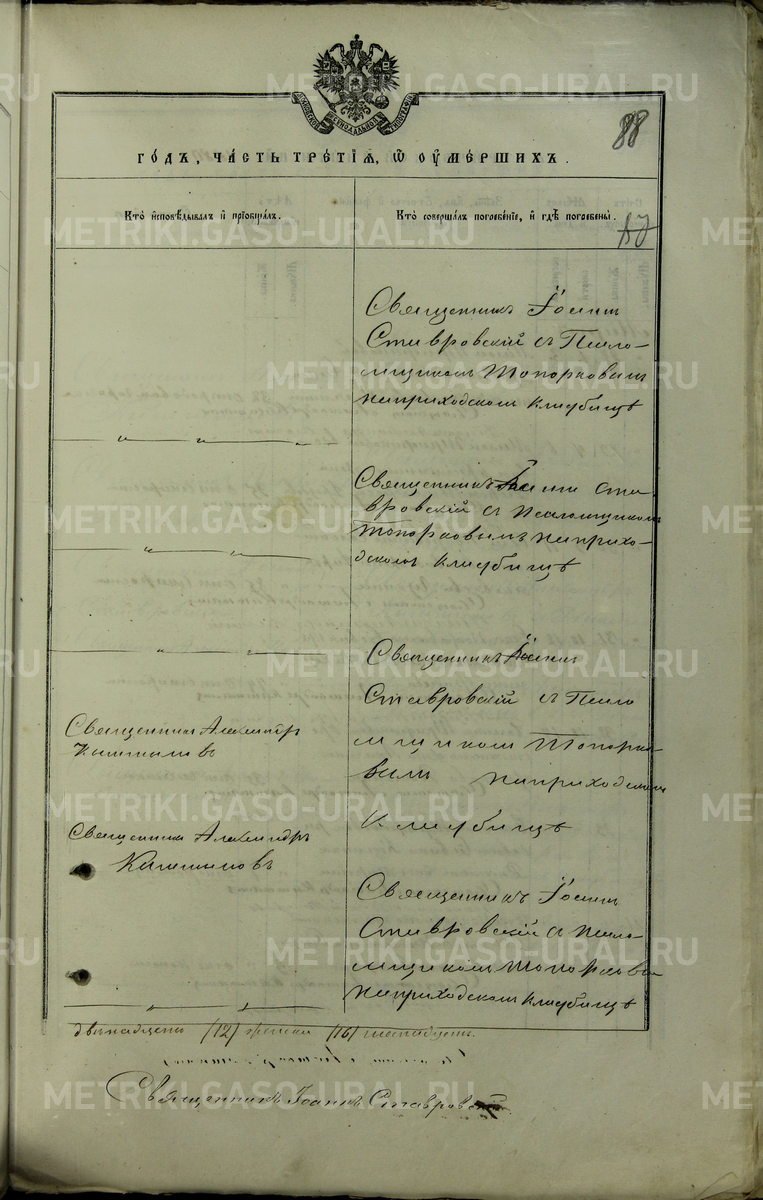 88
МОСКОВСКОЙ СѴНОДАЛЬНОЙ ТИПОГРАФІИ
ГО́ДЪ, ЧА́СТЬ ТРЕ́ТІѦ, Ѽ ОУ҆МЕ́РШИХЪ.
Кто̀ и҆сповѣ́дывалъ и҆ прїѡбща́лъ.
Кто̀ соверша́лъ погребе́нїе, и҆ гдѣ̀ погребены̀.
Священникъ Іоаннъ
Ставровскій съ Псало-
мщикомъ Топорковымъ
на приходскомъ кладбищѣ
Священникъ Іоаннъ Ста-
вровскій съ Псаломщикомъ
Топорковымъ на прихо-
дскомъ кладбищѣ
Священникъ Іоаннъ
Ставровскій съ Псало
мщикомъ Топорко-
вымъ на приходскомъ
кладбищѣ
Священникъ Александръ
Священникъ Александръ
Священникъ Іоаннъ
Ставровскій съ Псало-
мщикомъ Топорковы
на приходскомъ кладбищѣ
двѣнадцать (12) женска (16) шестнадцать.
Священникъ Іоаннъ Ставровскій
METRIKI.GASO-URAL.RU